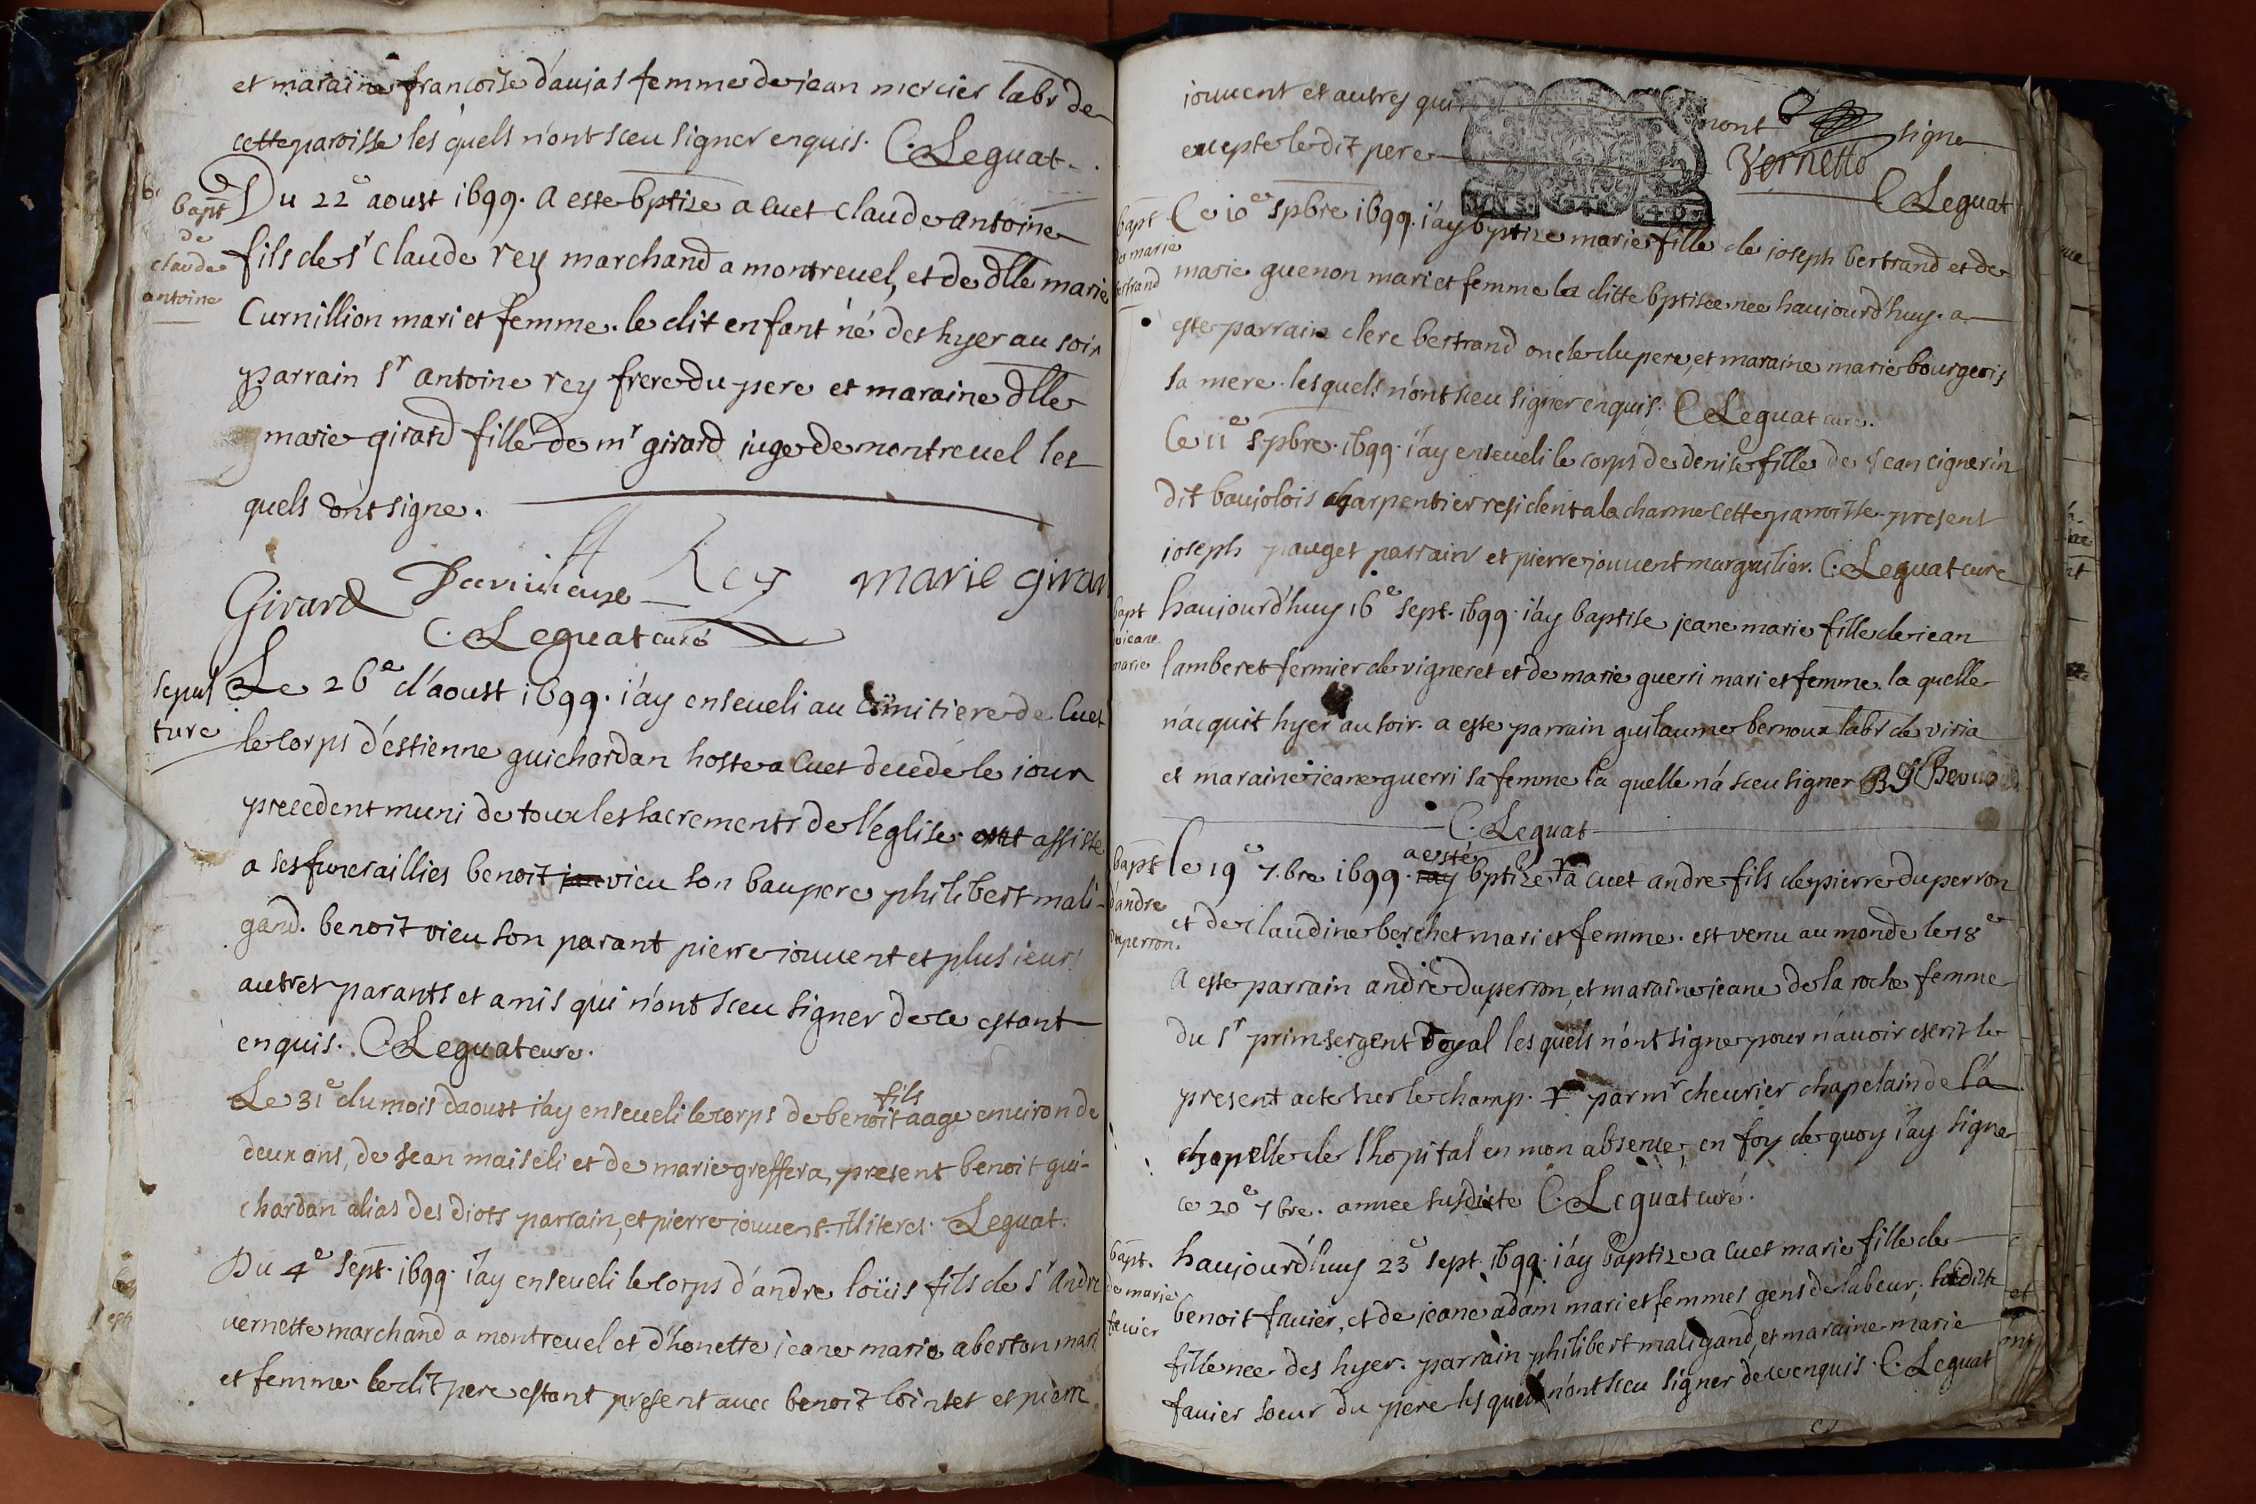 et maraine francoise daujas femme de jean mercier labr de
cette paroisse les quels n'ont sceu signer enquis. C. Leguat
bapt de claude antoine
Du 22e aoust 1699. a este bptize a cuet claude antoine
fils de sr claude rey marchand a montrevel, et de dlle marie
Curnillion mari et femme. le dit enfant né des hyer au soir
parrain sr antoine rey frere du pere et maraine dlle
marie girard fille de mr girard juge de montrevel les
quels ont signe.
Girard Rey marie girar
C. Leguat curé
sepul
ture
Le 26e d'aoust 1699. i'ay enseveli au cimitiere de Cuet
le corps d'estienne guichardan hoste a Cuet decedé le iour
precedent muni de tous les sacrements de l'eglise. ont assiste
a ses funerailles benoit vieu son baupere philibert mali-
gand. benoit vieu son parant pierre iouvent et plusieurs
autres parants et amis qui n'ont sceu signer de ce estant
enquis. C. Leguat cure.
Le 31e du mois daoust i'ay enseveli le corps de benoit fils aage environ de
deux ans, de jean maiseli et de marie greffera, present benoit gui-
chardan alias des diots parrain, et pierre iouvent. illiteres. Leguat.
Du 4e sept. 1699. i'ay enseveli le corps d'andre loüis fils de sr andre
vernette marchand a montrevel et d'honette jeane marie aberton mari
et femme. le dit pere estant present avec benoit lointet et pierre
iouvent et autres qui n'ont signe
excepte le dit pere Vernette
C Leguat
bapt de marie bertrand
Ce 10e spbre 1699. i'ay bptize marie fille de joseph bertrand et de
marie guenon mari et femme la ditte bptisée née haujourd'huy. a
este parrain clere bertrand oncle du pere, et maraine marie bourgeois
sa mere. lesquels n'ont sceu signer enquis. C Leguat curé.
Ce 11e spbre. 1699. i'ay enseveli le corps de denise fille de jean cignerin
dit baujolois charpentier resident a la charme cette parroisse. present
joseph pauget parrain et pierre jouvent margnilier. C. Leguat cure
bapt de jeane marie
haujourd'huy 16e sept. 1699. i'ay baptise jeane marie fille de jean
lamberet fermier de vigneret et de marie guerri mari et femme. la quelle
n'acquit hyer au soir. a este parrain guilaume bernoux labr de viria
et maraine jeane guerri sa femme la quelle n'a sceu signer
C. Leguat
bapt d'andre duperron.
le 19e 7.bre 1699. i'ay a esté bptize a cuet andre fils de pierre duperron
et de claudine berchet mari et femme. est venu au monde le 18e
a este parrain andre duperron, et maraine jeane de la roche femme
du sr prim sergent royal les quels n'ont signe pour n'avoir escrit le
present acte sur le champ. + par mr chevrier chapelain de la
chapelle de l'hopital en mon absence, en foy de quoy i'ay signe
ce 20e 7bre. annee susdicte C. Leguat curé.
bapt. de marie favier
haujourd'huy 23e sept. 1699. i'ay baptize a cuet marie fille de
benoit favier, et de jeane adam mari et femmes gens de labeur, la dite
fille née des hyer. parrain philibert maligand, et maraine marie
favier soeur du pere les quels n'ont sceu signer de ce enquis. C. Leguat